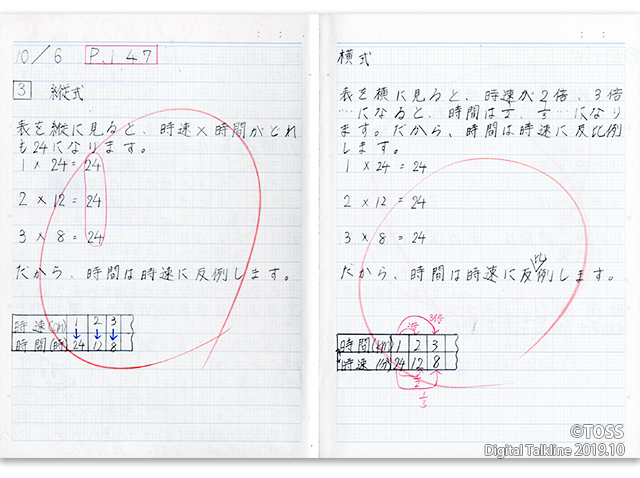 10/6 P.147
3 縦式
表を縦に見ると、時速×時間がどれ
も24になります。
1 × 24 = 24
2 × 12 = 24
3 × 8 = 24
だから、時間は時速に反例します。
時速(km) 1 2 3
時間(時) 24 12 8
横式
表を横に見ると、時速が2倍、3倍
…になると、時間は1/2 1/3 …になり
ます。だから、時間は時速に反比例
します。
1 × 24 = 24
2 × 12 = 24
3 × 8 = 24
比
だから、時間は時速に反例します。
2倍 3倍
時間(km) 1 2 3
時速(分) 24 12 8
1/2
1/3
©TOSS
Digital Talkline 2019.10